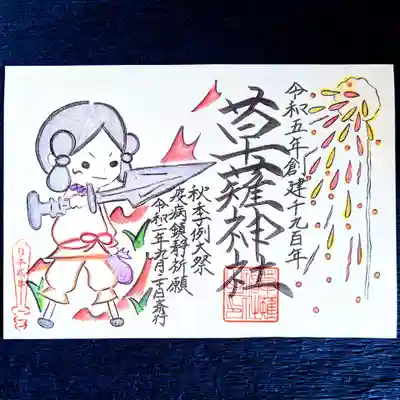 令和五年創建千九百年
草薙神社
秋季例大祭
疫病鎮静祈願
令和二年九月二十日斎行
日本武尊